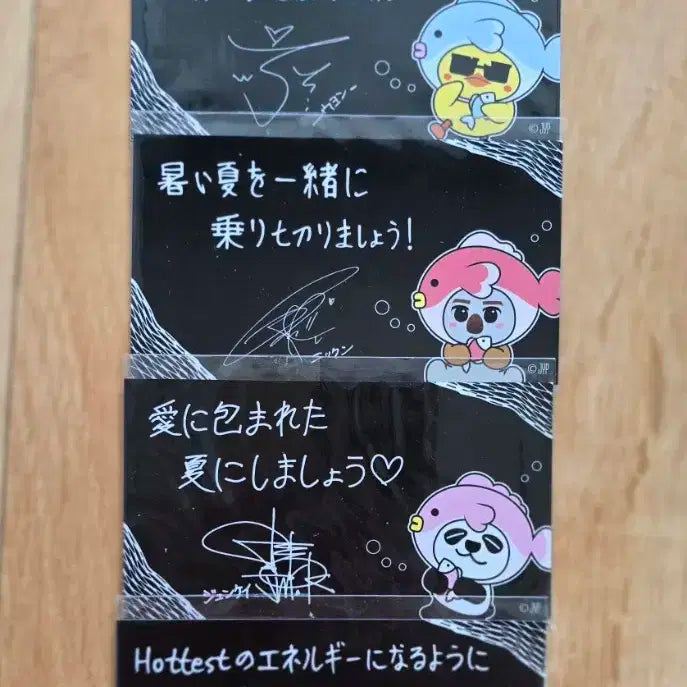 ーウヨンー
© JYP
暑い夏を一緒に
乗り切りましょう!
ニックン
© JYP
愛に包まれた
夏にしましょう♡
ジュンケイ
© JYP
Hottestのエネルギーになるように